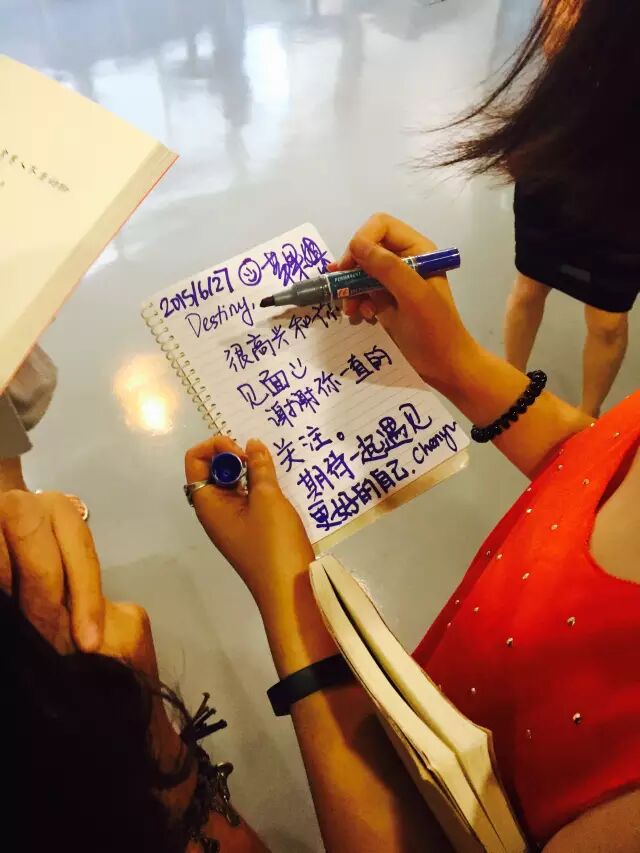 2015/6/27
Destiny.
很高兴和你
见面
谢谢你一直的
关注。
期待一起遇见
更好的自己.
PERMANENT